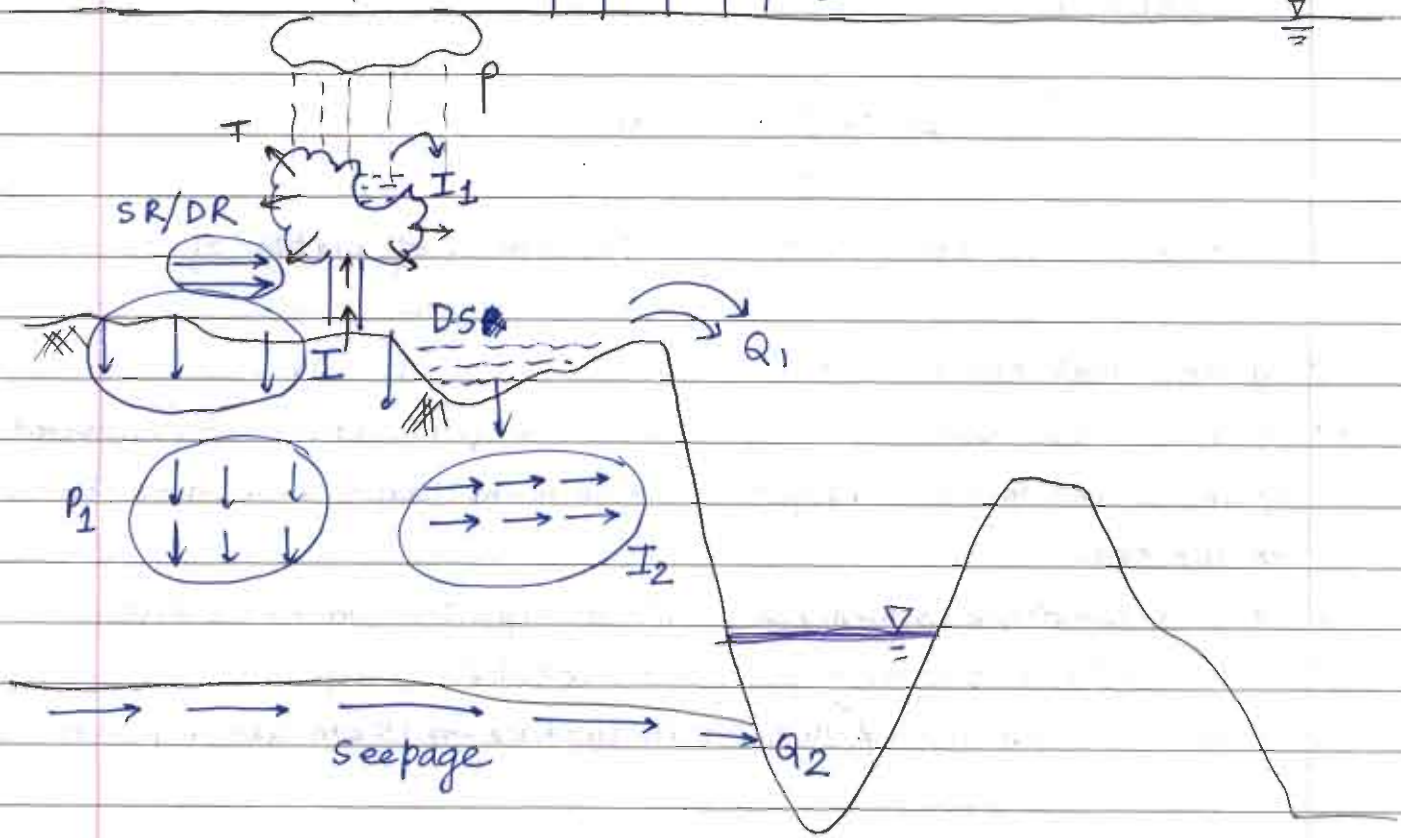 P
T
I1
SR/DR
DS
Q1
I
P1
I2
Seepage
Q2